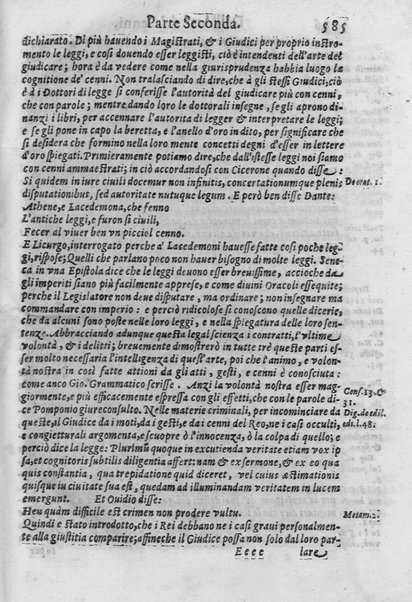 Parte Seconda. 585
dichiarato. Di più hauendo i Magistrati, & i Giudici per proprio instro-
mento le leggi, e così douendo esser leggisti, ciò è intendenti dell'arte del
giudicare; hora è da vedere come nella giurisprudenza habbia luogo la
cognitione de' cenni. Non tralasciando di dire, che à gli stessi Giudici, ciò
è à i Dottori di legge si conferisse l'autorità del giudicare più con cenni,
che con parole; mentre, dando loro le dottorali insegne, se gli aprono di-
nanzi i libri, per accennare l'autorità di legger & interpretare le leggi;
e se gli pone in capo la beretta, e l'anello d'oro in dito, per significare che
si desidera che formino nella loro mente concetti degni d'esser in lettere
d'oro spiegati. Primieramente potiamo dire, che dall'istesse leggi noi siamo
con cenni ammaestrati; in ciò accordandosi con Cicerone quando disse:
Si quidem in iure ciuili docemur non infinitis, concertationumque plenis De orat. 1.
disputationibus, sed autoritate nutuque legum. E però ben disse Dante:
Athene, e Lacedemona, che fenno
L'antiche leggi, e furon sì ciuili,
Fecer al viuer ben vn picciol cenno.
E Licurgo, interrogato perche a' Lacedemoni hauesse fatte così poche leg-
gi, rispose; Quelli che parlano poco non hauer bisogno di molte leggi. Sene-
ca in vna Epistola dice che le leggi deuono esser breuissime, accioche da
gli imperiti siano più facilmente apprese, e come diuini Oracoli essequite;
perche il Legislatore non deue disputare, ma ordinare; non insegnare ma
commandare con imperio: e perciò ridicolose si conoscono quelle dicerie,
che da alcuni sono poste nelle loro leggi, e nella spiegatura delle loro sen-
tenze. Abbracciando adunque questa legal scienza i contratti, l'vltime
volontà, & i delitti; breuemente dimostrerò in tutte trè queste parti es-
ser molto necessaria l'intelligenza di quest'arte, poi che l'animo, e volon-
tà nostra in così fatte attioni da gli atti, gesti, e cenni è conosciuta:
come anco Gio. Grammatico scrisse. Anzi la volontà nostra esser mag- Cons. 13. &
giormente, e più efficacemente espressa con gli effetti, che con le parole di- 31.
ce Pomponio giureconsulto. Nelle materie criminali, per incominciare da Dig. de ædil.
queste, il Giudice da i moti, da i gesti, e da i cenni del Reo, ne i casi occulti, edi. l. 48.
e congietturali argomenta, e scuopre ò l'innocenza, ò la colpa di quello; e
perciò dice la legge: Plurimũ quoque in excutienda veritate etiam vox ip
sa, et cognitoris subtilis diligentia affert: nam & ex sermone, & ex eo qua
quis constantia, qua trepidatione quid diceret, vel cuius æstimationis
quisque in ciuitate sua est, quedam ad illuminandam veritatem in lucem
emergunt. Et Ouidio disse:
Heu quàm difficile est crimen non prodere vultu. Metam. 2.
Quindi è stato introdotto, che i Rei debbano ne i casi graui personalmen-
te alla giustitia comparire; affineche il Giudice possa non solo dal loro par-
Eeee lare